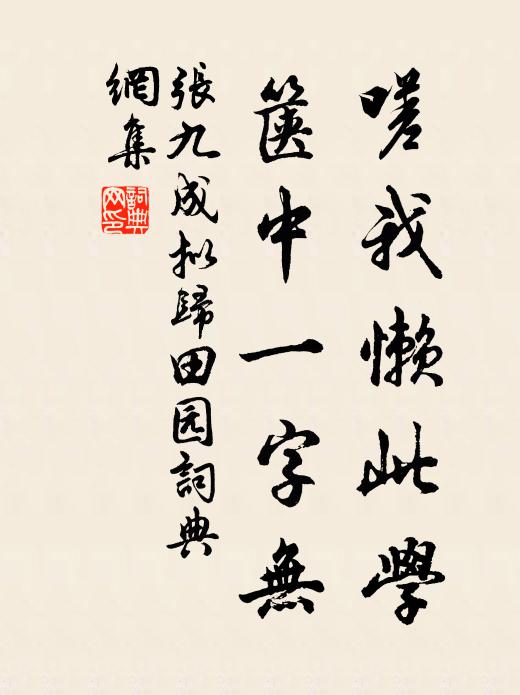 嗟我懒此學
篋中一字無
張九成拟歸田园詞典
網集
詞典網印